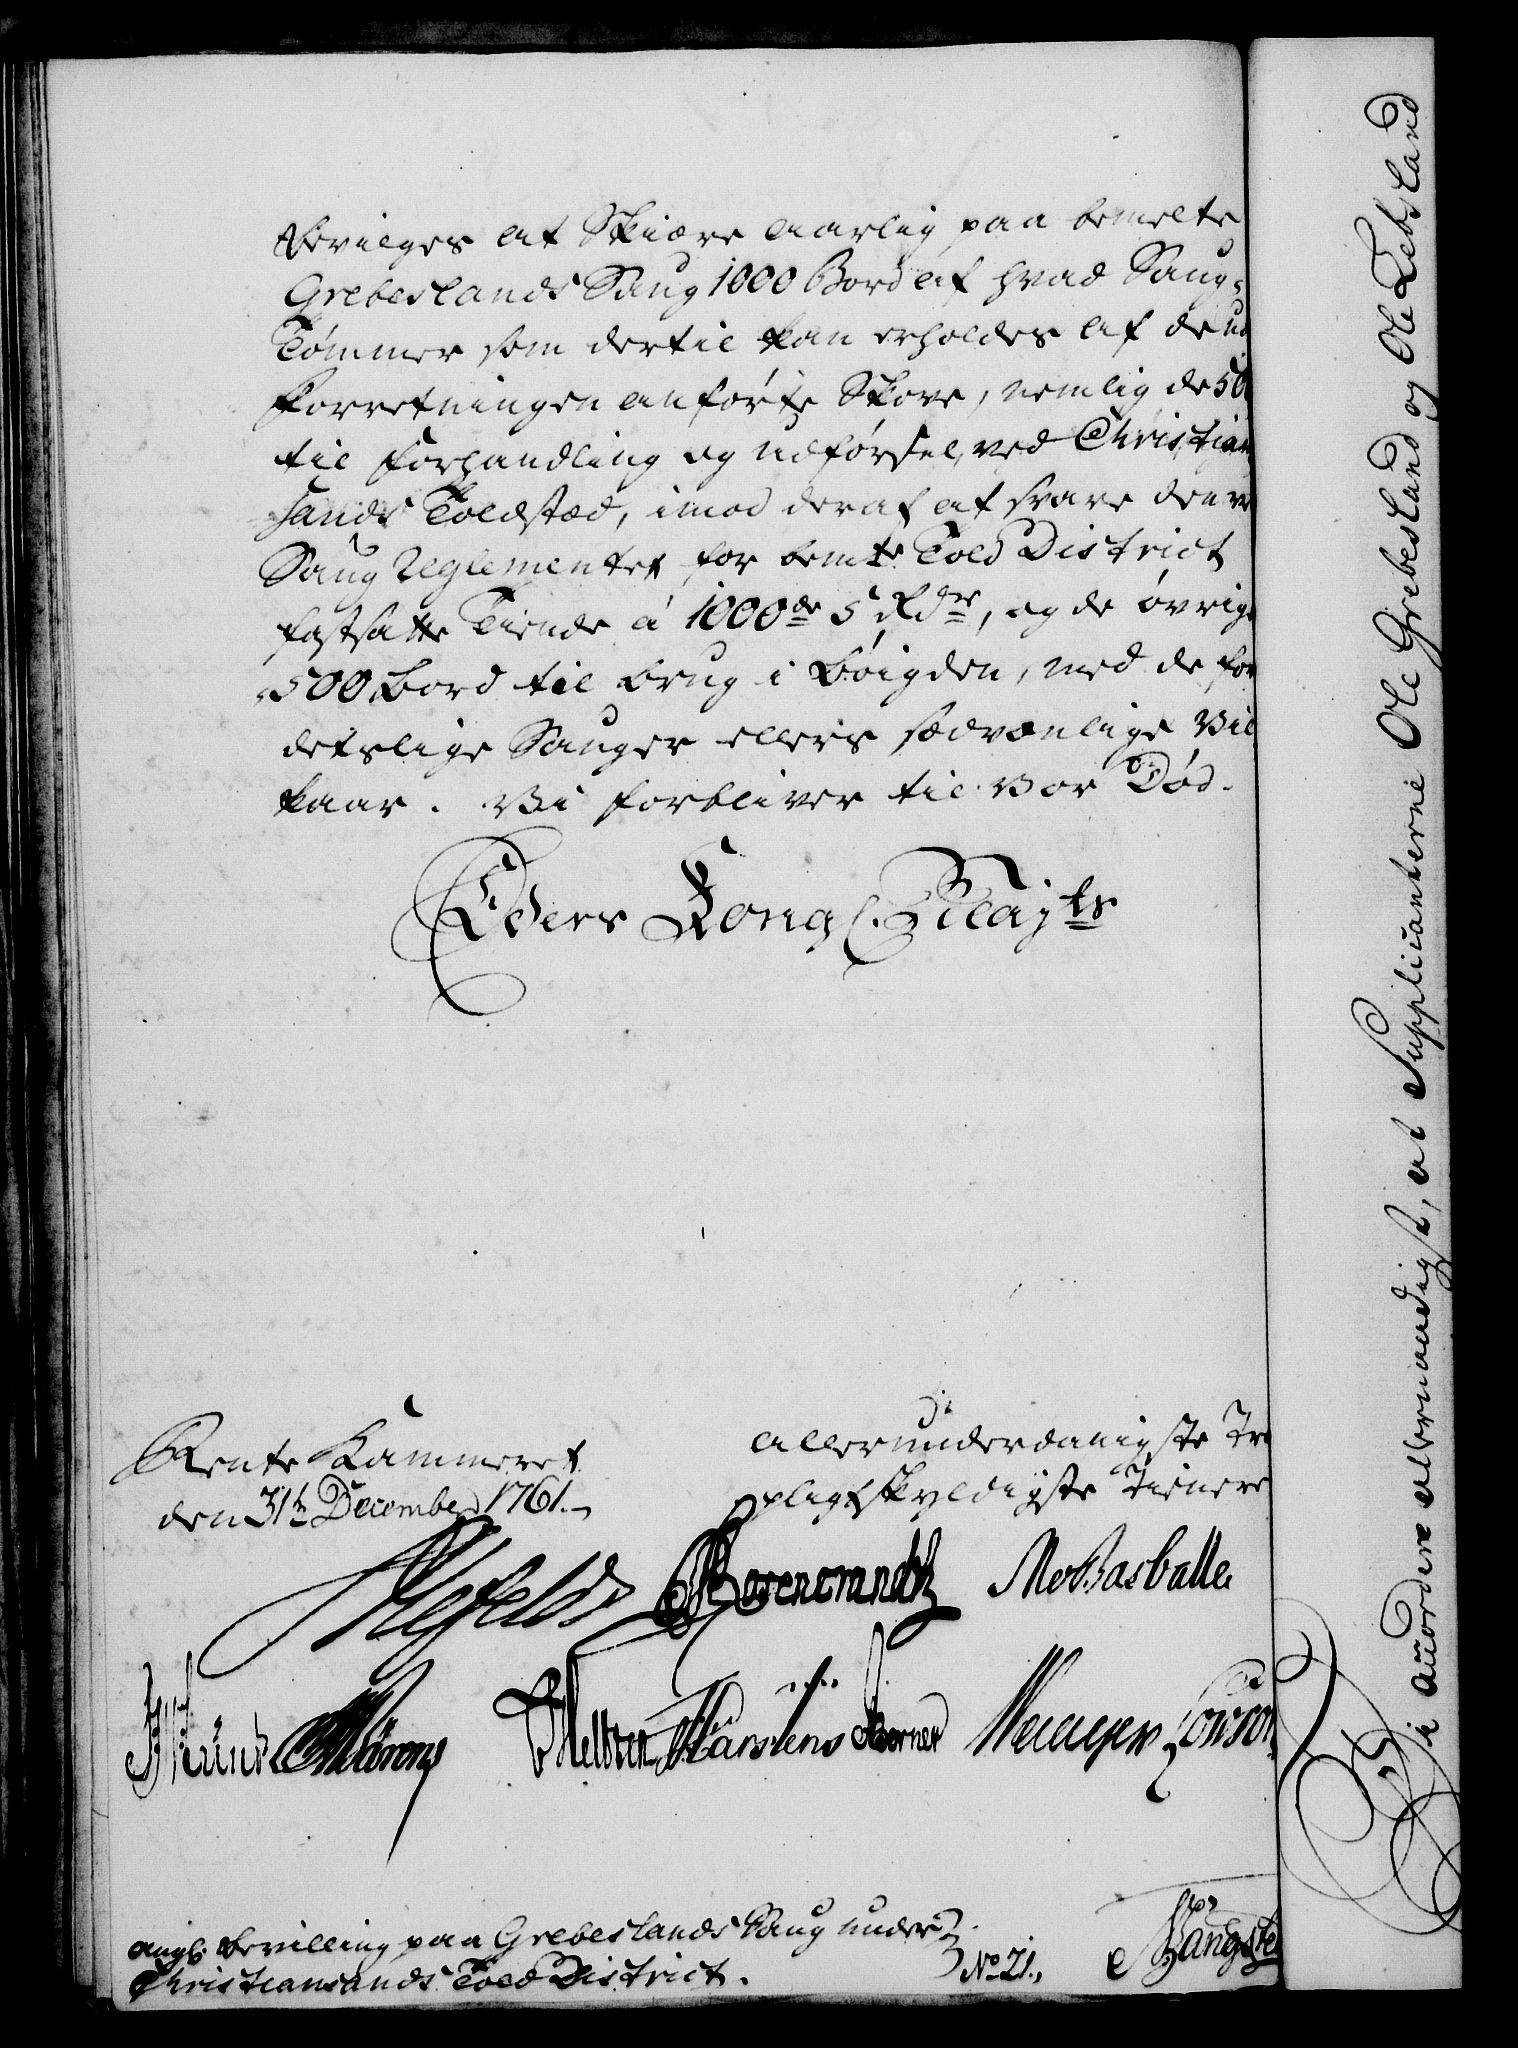 bevilges at Skiære aarlig paa bemelte
Grebeslands Saug 1000 Bord af hvad Saug-
Tømmer som dertil kan erholdes af de ud
Forretningen anførte Skove, nemlig de 50
til Forhandling og Udførsel, ved Christian
sands Toldstæd, imod deraf at svare den ve
Saug Reglementet for bemte Told District
fastsatte Tiende á 1000de 5 Rdr, og de øvrige
500 Bord til brug i Bøigden, med de for
deslige Sauger ellers sædvanlige Vil
kaar. Vi forbliver til vor Død.
Eders Kongl. Mayts
Rente Kammeret
den 31te December 1761.
allerunderdanigste Tro
pligtskyldigste Tienere
Ahlefeldt Rosencrandtz
Angl. Bevilling paa Grebeslands Saug under
Christiansands Told District.
No 21.
Bangste
Vi accordere allernaadigst, at Supplicanterne Ole Grebesland og Ole Lebsland